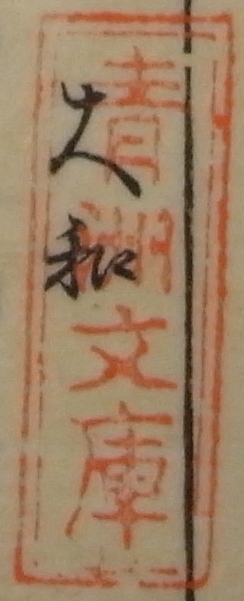 大和
青洲文庫